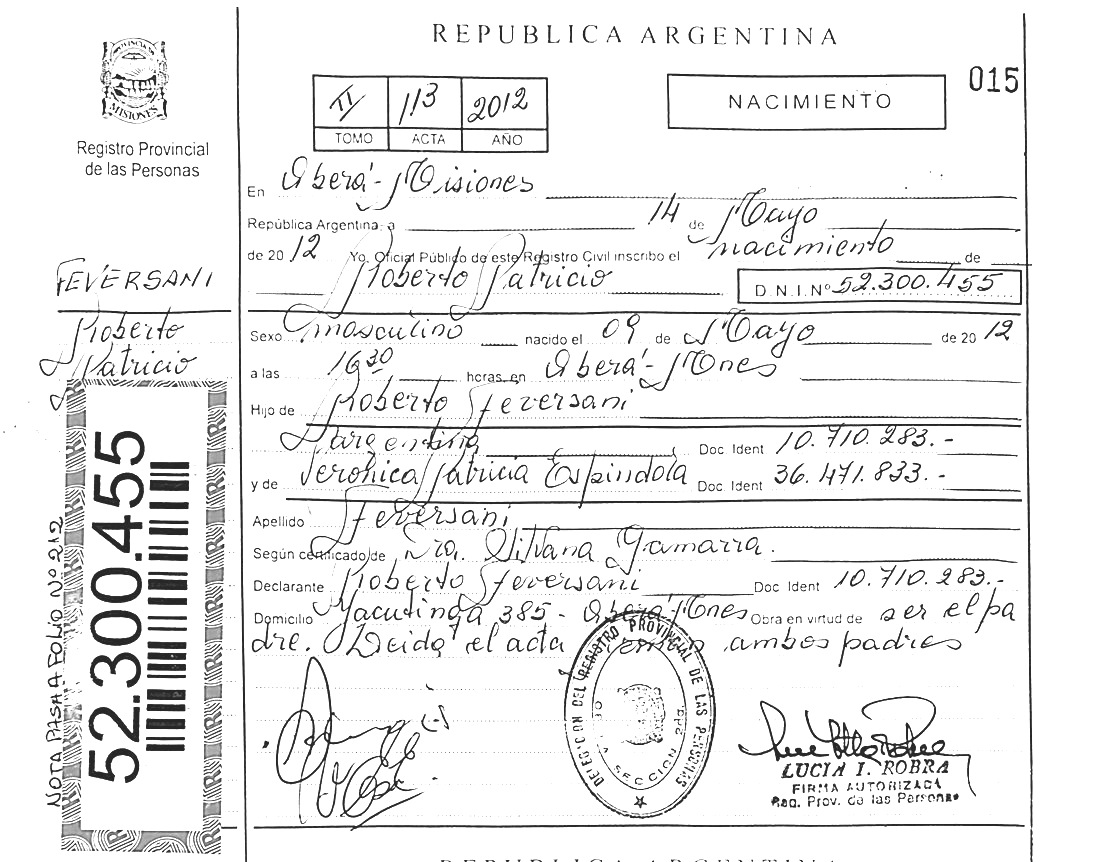 REPUBLICA ARGENTINA
015
PROVINCIA DE
MISIONES
Registro Provincial
de las Personas
II 113 2012
TOMO ACTA AÑO
NACIMIENTO
En Oberá - Misiones
República Argentina, a 14 de Mayo
de 2012 Yo, Oficial Público de este Registro Civil inscribo el nacimiento de
Roberto Patricio
D.N.I.Nº 52.300.455
FEVERSANI
Roberto
Patricio
Sexo masculino nacido el 09 de Mayo de 2012
a las 16 30 horas, en Oberá - Mnes
Hijo de Roberto Feversani
Argentina Doc. Ident 10.710.283.-
y de Verónica Patricia Espindola Doc. Ident 36.471.833.-
Apellido Feversani
Según certificado de Dra. Silvana Gamarra.
Declarante Roberto Feversani Doc. Ident 10.710.283.-
Domicilio Yacutinga 385 - Oberá - Mnes Obra en virtud de ser el pa
dre. Leida el acta ambos padres
52.300.455
NOTA PASA A FOLIO Nº 212
DELEGACION DEL REGISTRO PROVINCIAL DE LAS PERSONAS
SECCION
LUCIA I. ROBRA
FIRMA AUTORIZADA
Reg. Prov. de las Personas
REPUBLICA ARGENTINA